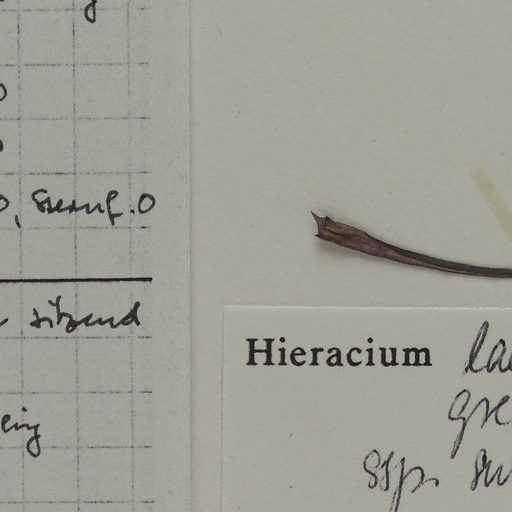 0
, Sternf. 0
sitzend
Hieracium la
gre
ssp. su